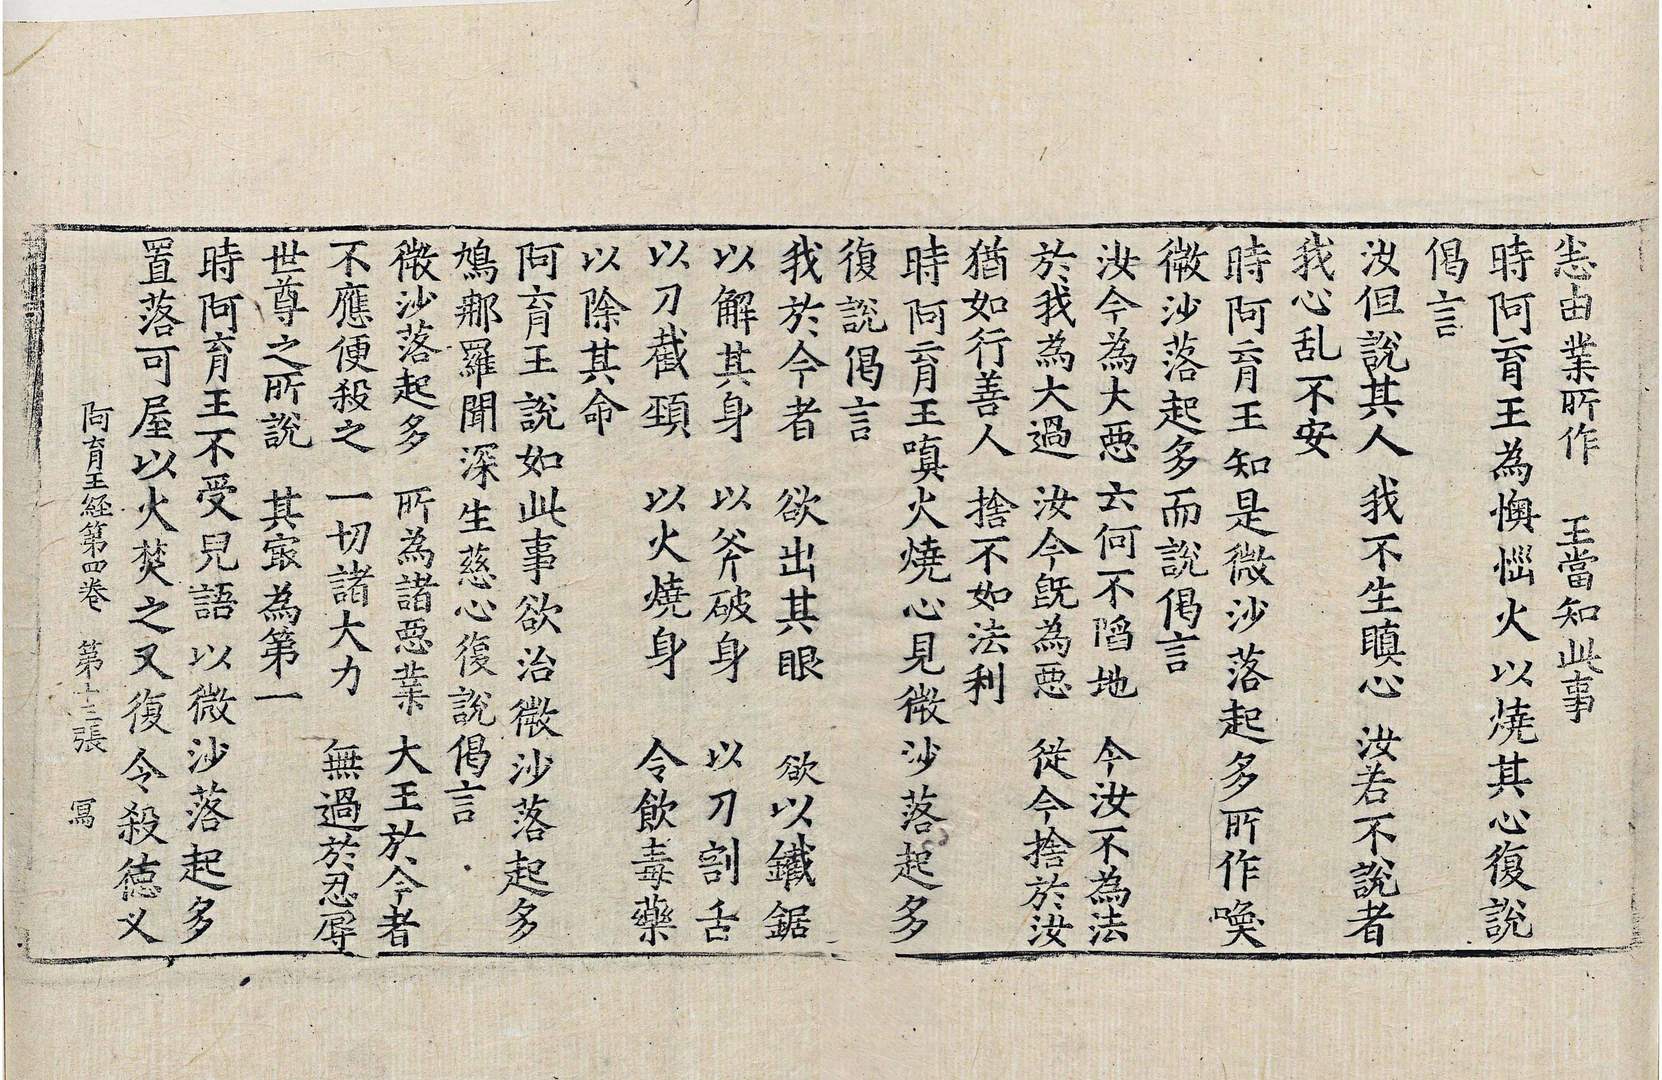 恚由業所作　王當知此事
時阿育王為懊惱火以燒其心復說
偈言
汝但說其人　我不生瞋心　汝若不說者
我心乱不安
時阿育王知是微沙落起多所作喚
微沙落起多而說偈言
汝今為大惡　云何不陷地　今汝不為法
於我為大過　汝今旣為惡　從今捨於汝
猶如行善人　捨不如法利
時阿育王嗔火燒心見微沙落起多
復說偈言
我於今者　欲出其眼　欲以鐵鋸
以解其身　以斧破身　以刀割舌
以刀截頸　以火燒身　令飲毒藥
以除其命
阿育王說如此事欲治微沙落起多
鳩那羅聞深生慈心復說偈言
微沙落起多　所為諸惡業　大王於今者
不應便殺之　一切諸大力　無過於忍辱
世尊之所說　其冣為第一
時阿育王不受兒語以微沙落起多
置落可屋以火焚之又復令殺德叉
阿育王経第四卷　第十三張　冩